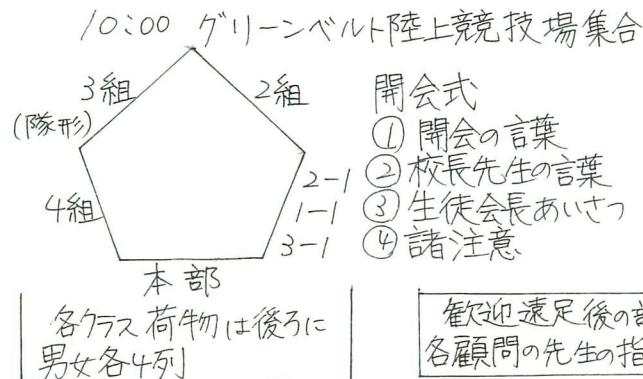 10:00 グリーンベルト陸上競技場集合
3組
2組
(隊形)
4組
2-1
1-1
3-1
本部
開会式
① 開会の言葉
② 校長先生の言葉
③ 生徒会長あいさつ
④ 諸注意
各クラス荷物は後ろに
男女各4列
歓迎遠足後の
各顧問の先生の指